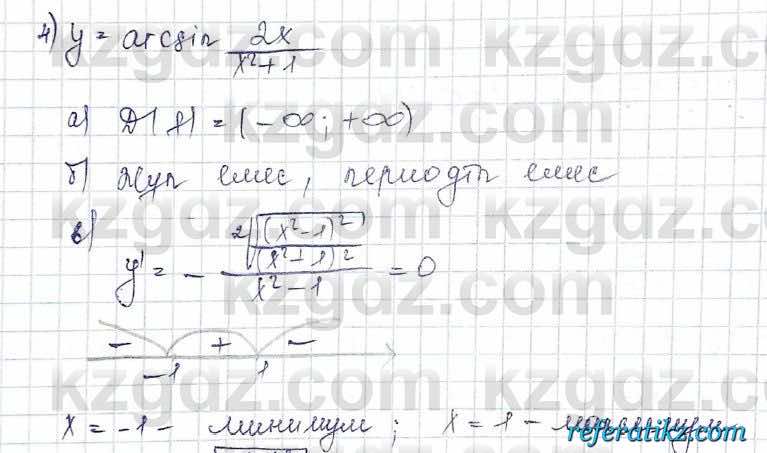 4) y = arcsin 2x/(x²+1)
а) D(f) = (-∞; +∞)
б) Жуп емес, периодты емес
в) y' = - (2√((x²-1)²/(x²+1)²))/(x²-1) = 0
- + -
-1 1
x = -1 - минимум; x = 1 -
kzgdz.com
referatikz.com